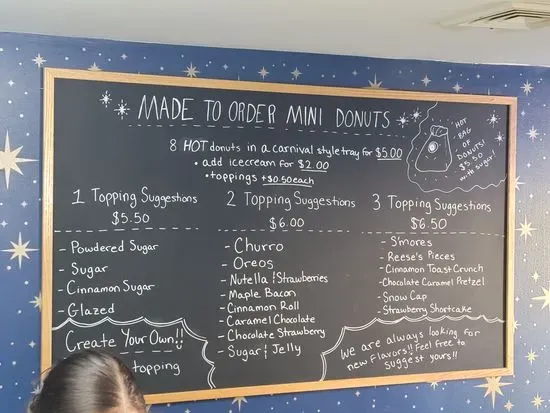 MADE TO ORDER MINI DONUTS
8 HOT donuts in a carnival style tray for $5.00
• add icecream for $2.00
• toppings +$0.50 each
HOT
BAG
OF
DONUTS!
$5.50
with sugar!
1 Topping Suggestions
$5.50
- Powdered Sugar
- Sugar
- Cinnamon Sugar
- Glazed
2 Topping Suggestions
$6.00
- Churro
- Oreos
- Nutella & Strawberries
- Maple Bacon
- Cinnamon Roll
- Caramel Chocolate
- Chocolate Strawberry
- Sugar & Jelly
3 Topping Suggestions
$6.50
- S'mores
- Reese's Pieces
- Cinnamon Toast Crunch
- Chocolate Caramel Pretzel
- Snow Cap
- Strawberry Shortcake
Create Your Own!!
topping
We are always looking for
new flavors!! Feel free to
suggest yours!!